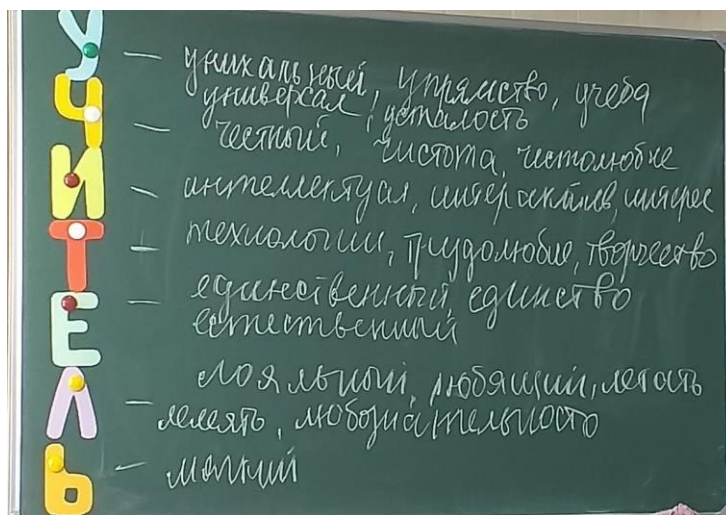 У — уникальный, упрямство, учеба
универсал, усталость
Ч — честный, чистота, честолюбие
И — интеллектуал, интерактив, интерес
Т — технологии, трудолюбие, творчество
Е — единственный, единство
естественный
лояльный, любящий, летать
Л — лелеять, любознательность
Ь — мягкий